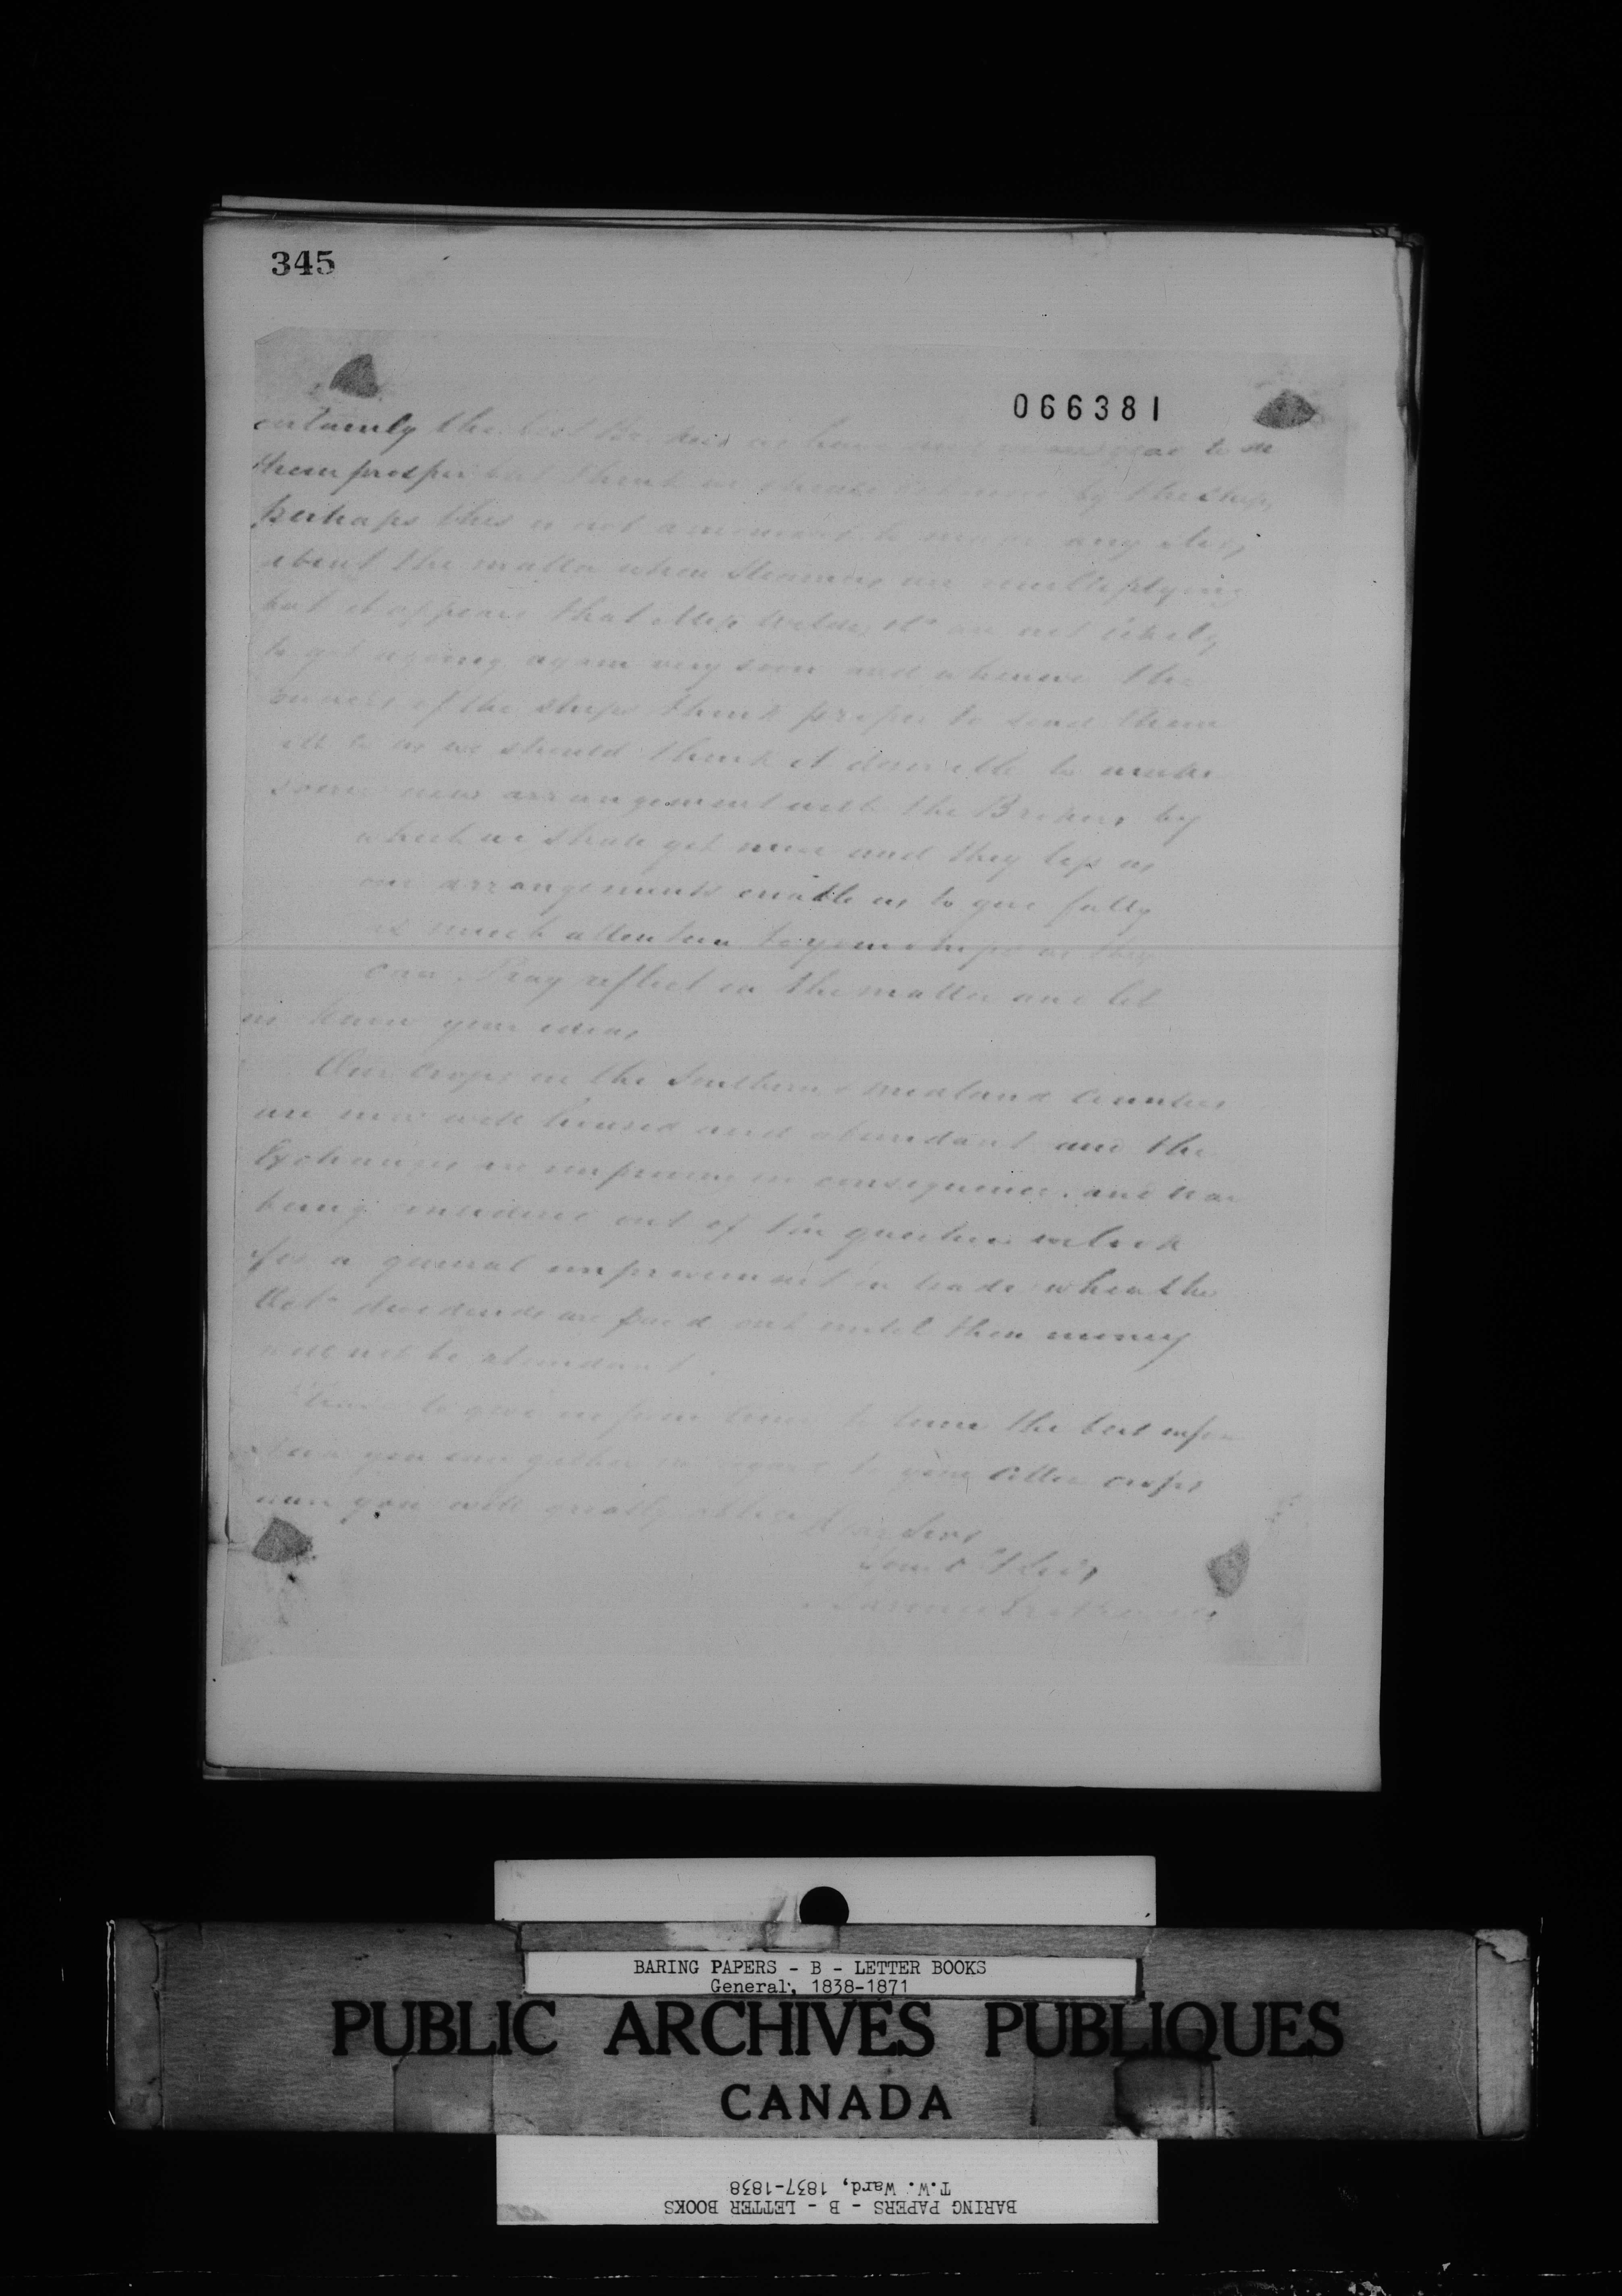 345
066381
certainly the best Brokers we have and we are glad to see
them prosper but think we should not lose by the ships,
perhaps this is not a moment to make any stir,
about the matter when Steamers are multiplying
but it appears that Mess Wildes & Co are not likely
to get agoing again very soon and whenever the
owners of the ships think proper to send them
all to us we should think it desirable to make
some new arrangement with the Brokers by
which we shall get more and they less as
our arrangements enable us to give fully
as much attention to your ships as they
can. Pray reflect on the matter and let
us know your ideas,
Our crops in the Southern & midland Counties
are now well housed and abundant and the
Exchanges are improving in consequence, and war
being considered out of the question we look
for a general improvement in trade when the
Octr dividends are paid out until then money
will not be abundant.
to give us from time to time the best infor
you can gather in regard to your Cotton crops
and you will greatly oblige Dear Sirs
Your Ob Servs
Baring Brothers & Co
BARING PAPERS - B - LETTER BOOKS
General, 1838-1871
PUBLIC ARCHIVES PUBLIQUES
CANADA
T.W. Ward, 1837-1838
BARING PAPERS - B - LETTER BOOKS